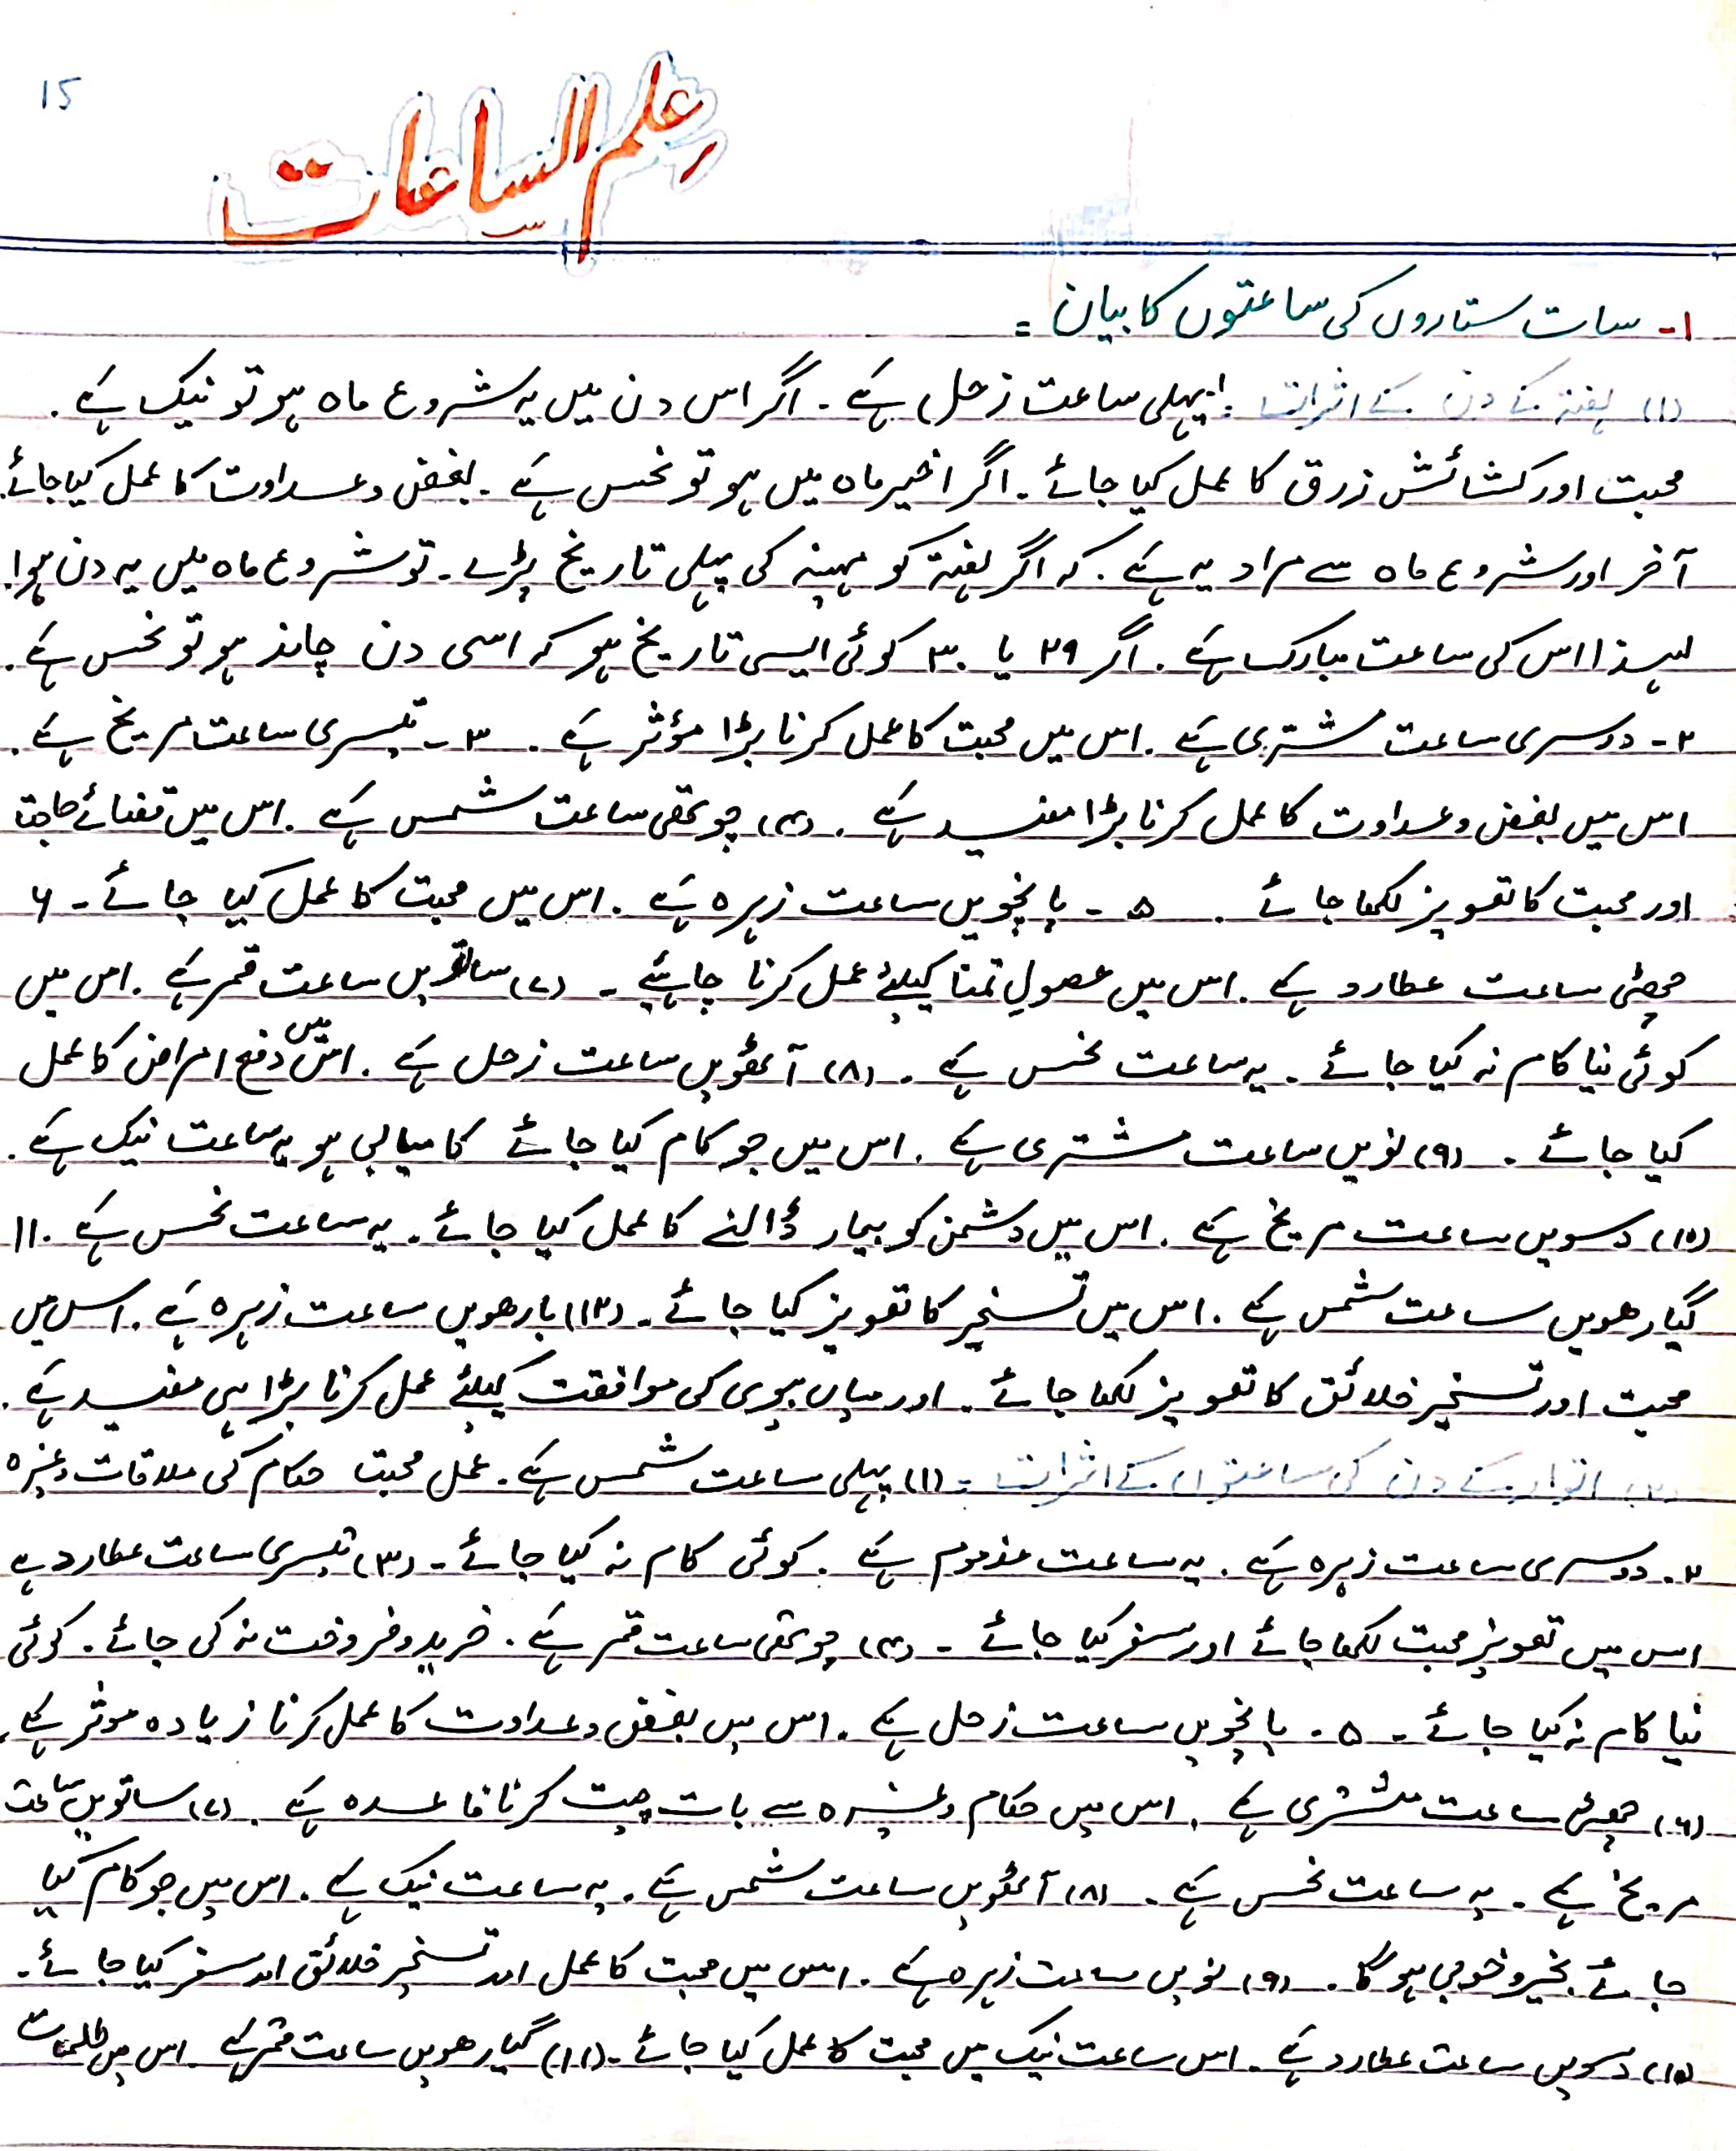 15
علم الساعات
۱- سات ستاروں کی ساعتوں کا بیان =
(۱) ہفتہ کے دن کے اثرات : پہلی ساعت زحل ہے ۔ اگر اس دن میں یہ شروع ماہ ہو تو نیک ہے ۔
محبت اور کشائش زرق کا عمل کیا جائے ۔ اگر اخیر ماہ میں ہو تو نحس ہے ۔ بغض و عداوت کا عمل کیا جائے ۔
آخر اور شروع ماہ سے مراد یہ ہے ۔ کہ اگر ہفتہ کو مہینہ کی پہلی تاریخ پڑے ۔ تو شروع ماہ میں یہ دن ہوا ۔
لہذا اس کی ساعت مبارک ہے ۔ اگر ۲۹ یا ۳۰ کوئی ایسی تاریخ ہو کہ اسی دن چاند ہو تو نحس ہے ۔
۲- دوسری ساعت مشتری ہے ۔ اس میں محبت کا عمل کرنا بڑا مؤثر ہے ۔ ۳- تیسری ساعت مریخ ہے ۔
اس میں بغض و عداوت کا عمل کرنا بڑا مفید ہے ۔ (۴) چوتھی ساعت شمس ہے ۔ اس میں قضائے حاجتا
اور محبت کا تعویز لکھا جائے ۔ ۵- پانچویں ساعت زہرہ ہے ۔ اس میں محبت کا عمل کیا جائے ۔ ۶
چھٹی ساعت عطارد ہے ۔ اس میں حصولِ تمنا کیلئے عمل کرنا چاہئیے ۔ (۷) ساتویں ساعت قمر ہے ۔ اس میں
کوئی نیا کام نہ کیا جائے ۔ یہ ساعت نحس ہے ۔ (۸) آٹھویں ساعت زحل ہے ۔ اس میں دفع امراض کا عمل
کیا جائے ۔ (۹) نویں ساعت مشتری ہے ۔ اس میں جو کام کیا جائے کامیابی ہو یہ ساعت نیک ہے ۔
(۱۰) دسویں ساعت مریخ ہے ۔ اس میں دشمن کو بیمار ڈالنے کا عمل کیا جائے ۔ یہ ساعت نحس ہے ۔ ۱۱
گیارھویں ساعت شمس ہے ۔ اس میں تسخیر کا تعویز کیا جائے ۔ (۱۲) بارھویں ساعت زہرہ ہے ۔ اس میں
محبت اور تسخیر خلائق کا تعویز لکھا جائے ۔ اور میاں بیوی کی موافقت کیلئے عمل کرنا بڑا ہی مفید ہے ۔
(۲) اتوار کے دن کی ساعتوں کے اثرات : (۱) پہلی ساعت شمس ہے ۔ عمل محبت حکام کی ملاقات وغیرہ
۲- دوسری ساعت زہرہ ہے ۔ یہ ساعت مذموم ہے ۔ کوئی کام نہ کیا جائے ۔ (۳) تیسری ساعت عطارد ہے
اس میں تعویز محبت لکھا جائے اور سفر کیا جائے ۔ (۴) چوتھی ساعت قمر ہے ۔ خرید و فروخت نہ کی جائے ۔ کوئی
نیا کام نہ کیا جائے ۔ ۵- پانچویں ساعت زحل ہے ۔ اس میں بغض و عداوت کا عمل کرنا زیادہ موثر ہے ۔
(۶) چھٹی ساعت مشتری ہے ۔ اس میں حکام وغیرہ سے بات چیت کرنا فاعدہ ہے ۔ (۷) ساتویں ساعت
مریخ ہے ۔ یہ ساعت نحس ہے ۔ (۸) آٹھویں ساعت شمس ہے ۔ یہ ساعت نیک ہے ۔ اس میں جو کام کیا
جائے بخیر و خوبی ہو گا ۔ (۹) نویں ساعت زہرہ ہے ۔ اس میں محبت کا عمل اور تسخیر خلائق اور سفر کیا جائے ۔
(۱۰) دسویں ساعت عطارد ہے ۔ اس ساعت نیک میں محبت کا عمل کیا جائے ۔ (۱۱) گیارھویں ساعت قمر ہے ۔ اس میں طلسمات